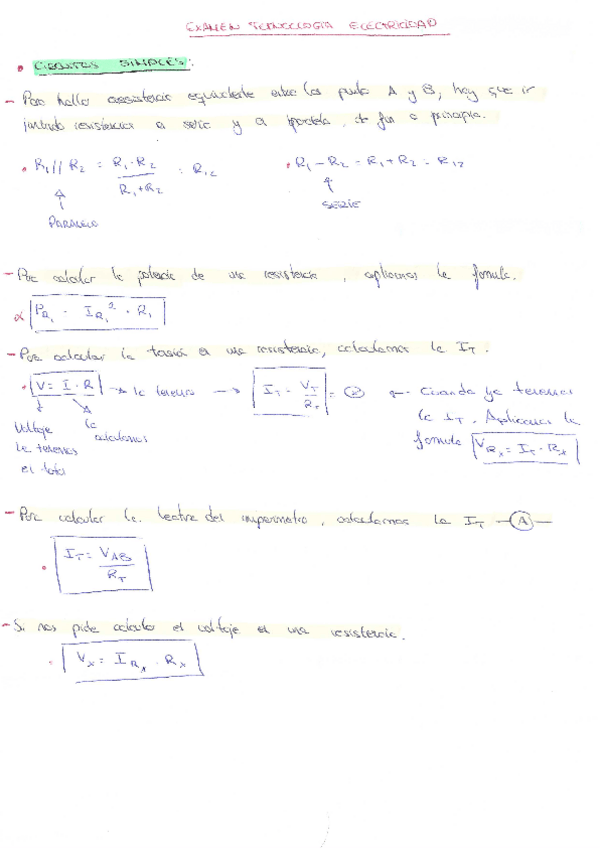 EXAMEN TECNOLOGIA ELECTRICIDAD
• CIRCUITOS SIMPLES:
- Para hallar resistencia equivalente entre los puntos A y B, hay que ir
juntando resistencias en serie y en paralelo, de fin a principio.
• R₁ // R₂ = R₁·R₂ / R₁+R₂ = R₁₂
• R₁ – R₂ = R₁ + R₂ = R₁₂
PARALELO
SERIE
- Para calcular la potencia de una resistencia, aplicamos la formula.
P_R₁ = I_R₁² · R₁
- Para calcular la tensión en una resistencia, calculamos la I_T.
• V = I · R → la tenemos → I_T = V_T / R_T =
Voltaje
la tenemos
el total
la
calculamos
← Cuando ya tenemos
la I_T. Aplicamos la
formula V_Rx = I_T · R_x
- Para calcular la lectura del amperimetro, calculamos la I_T —(A)—
• I_T = V_AB / R_T
- Si nos pide calcular el voltaje en una resistencia.
• V_x = I_Rx · R_x